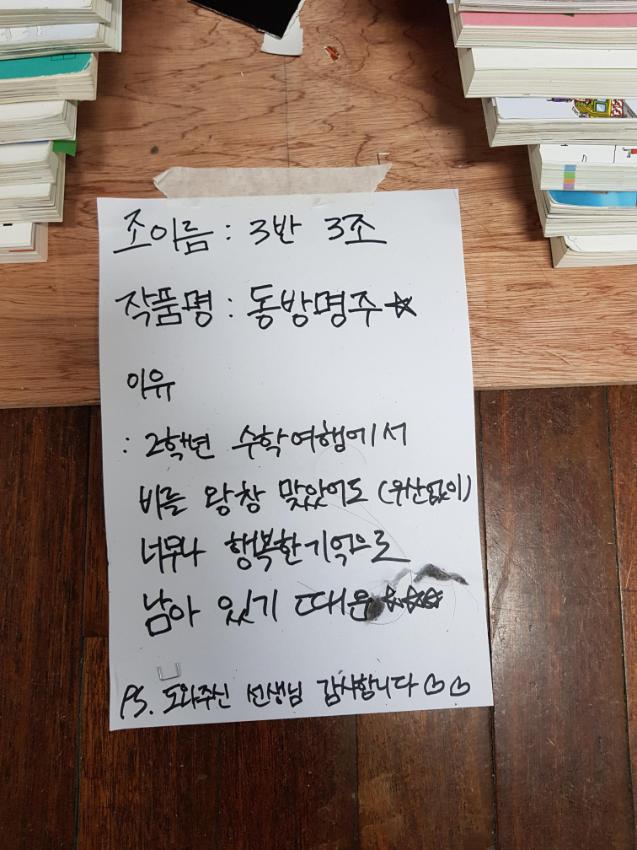 조이름 : 3반 3조
작품명 : 동방명주☆
이유
: 2학년 수학여행에서
비를 왕창 맞았어도 (우산없이)
너무나 행복한 기억으로
남아 있기 때문 ☆☆☆
PS. 도와주신 선생님 감사합니다♡♡